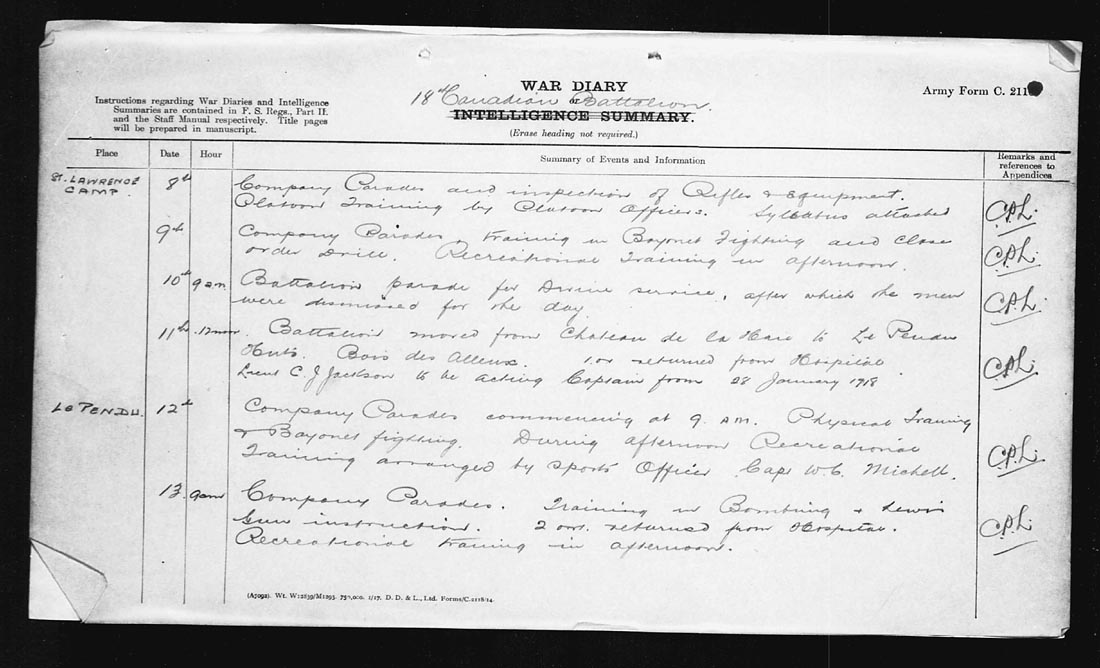 WAR DIARY
18th Canadian or Battalion.
INTELLIGENCE SUMMARY.
(Erase heading not required.)
Army Form C. 211
Instructions regarding War Diaries and Intelligence
Summaries are contained in F. S. Regs., Part II.
and the Staff Manual respectively. Title pages
will be prepared in manuscript.
Place Date Hour Summary of Events and Information Remarks and references to Appendices
ST. LAWRENCE CAMP 8th Company Parades and inspection of Rifles & Equipment.
Platoon Training by Platoon Officers. Syllabus attached C.P.L.
9th Company Parades, training in Bayonet Fighting and Close
order Drill. Recreational Training in afternoon. C.P.L.
10th 9 am Battalion parade for Divine service, after which the men
were dismissed for the day C.P.L.
11th 12 noon. Battalion moved from Chateau de la Haie to Le Pendu
Huts. Bois des Alleux. 1 or returned from Hospital.
Lieut C. J Jackson to be acting Captain from 28 January 1918 C.P.L.
LE PENDU. 12th Company Parades commencing at 9. AM. Physical Training
& Bayonet fighting. During afternoon Recreational
Training arranged by Sports Officer Capt W.C. Michell. C.P.L.
13. 9 am Company Parades. Training in Bombing & Lewis
Gun instruction. 2 or. returned from Hospital.
Recreational training in afternoon. C.P.L.
(A7092). Wt. W12839/M1293. 750,000. 1/17. D. D. & L., Ltd. Forms/C.2118/14.